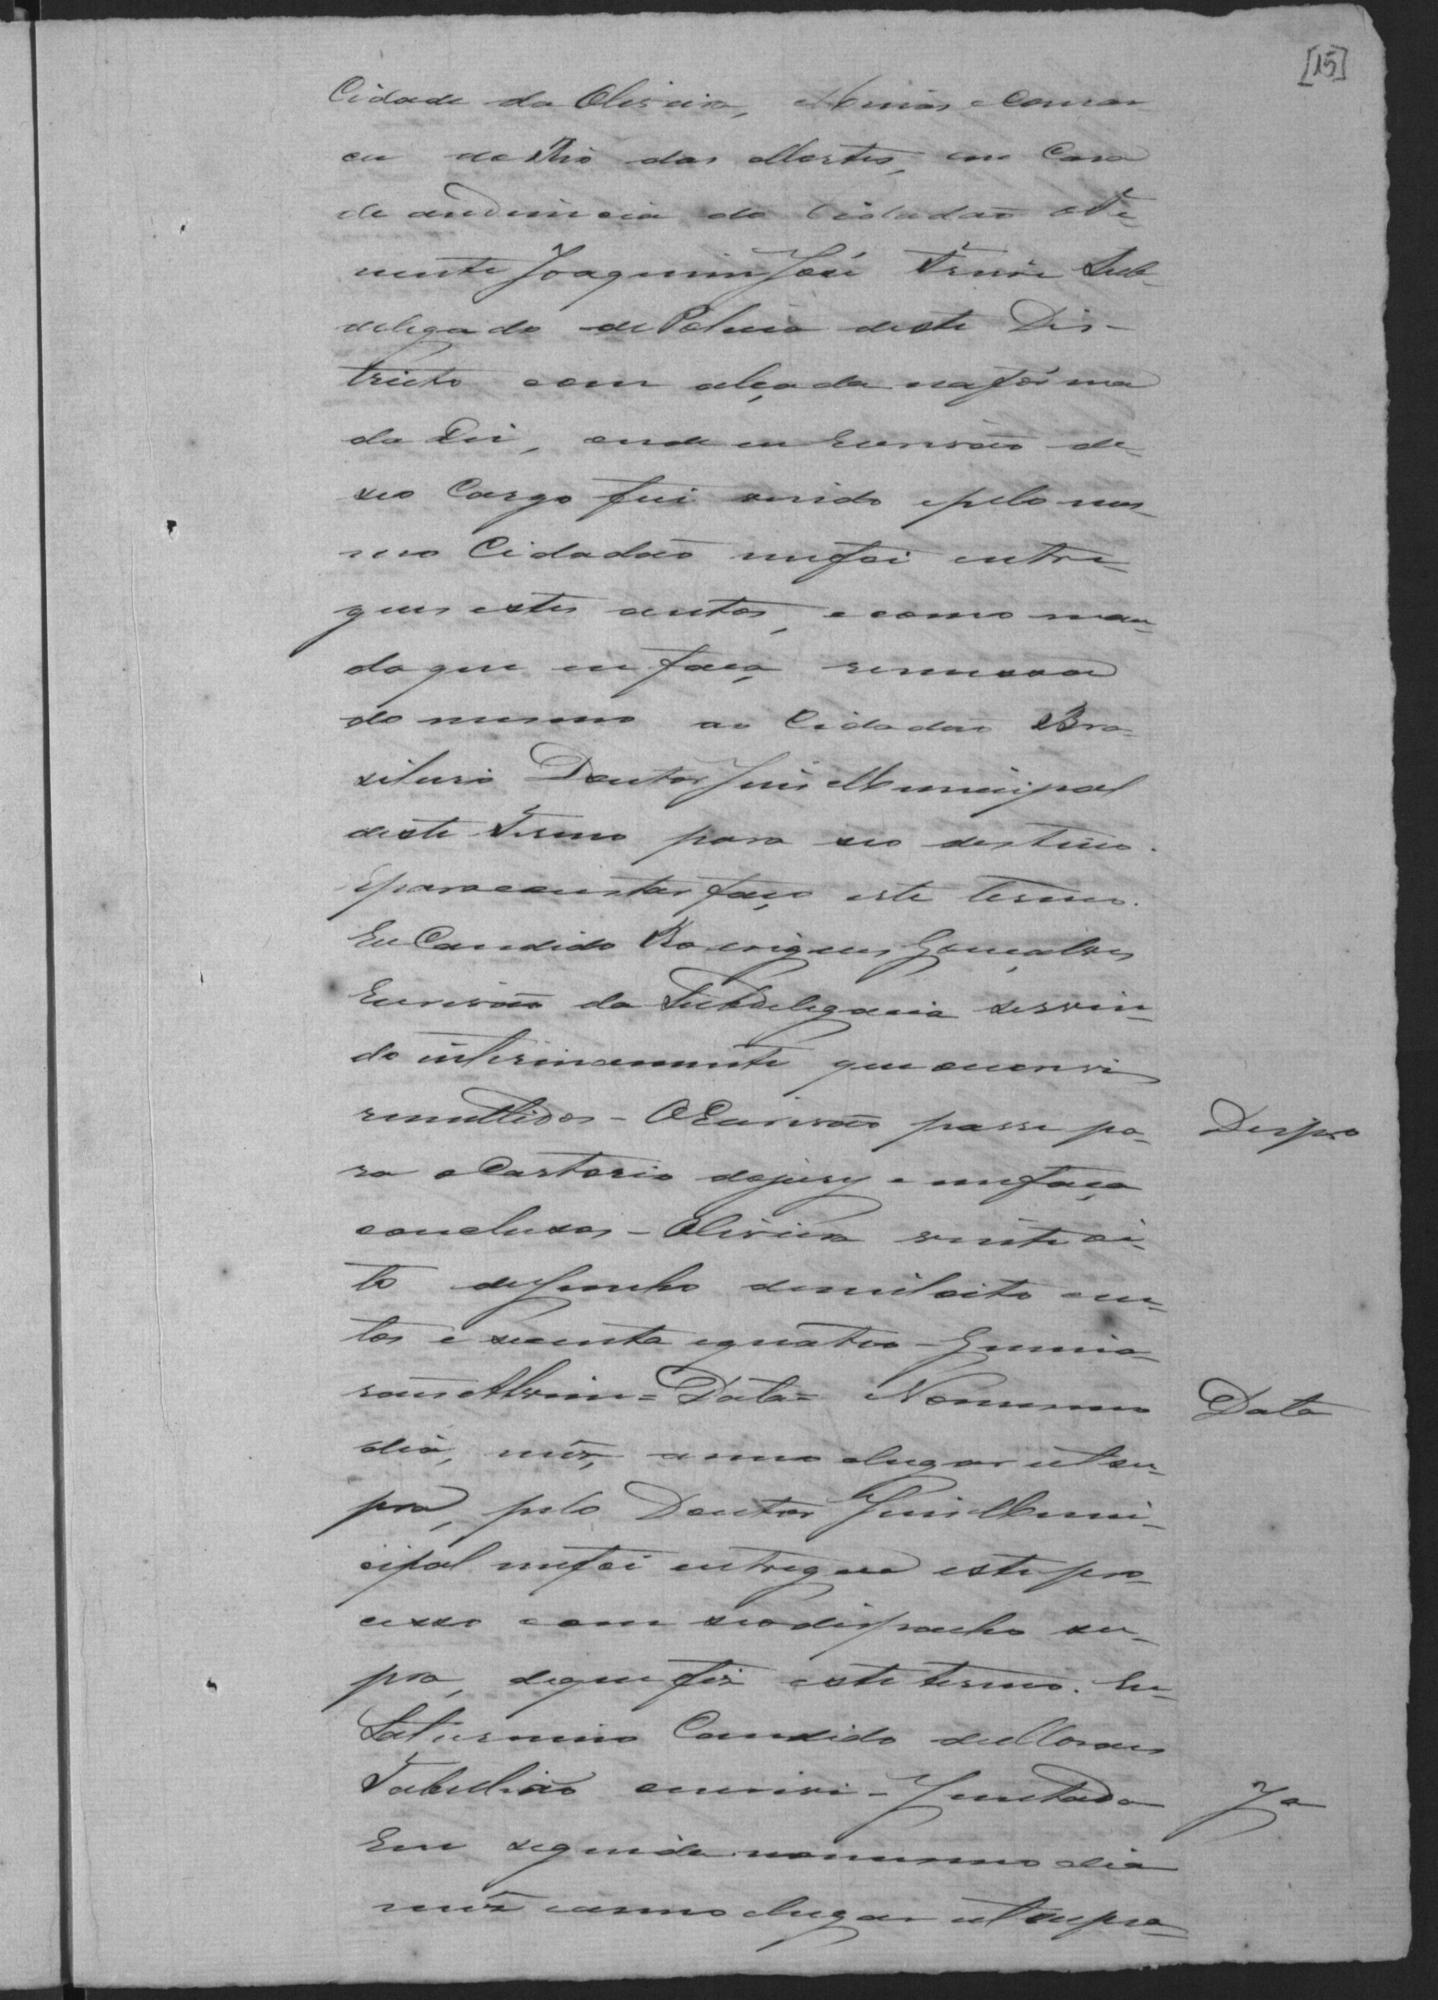 [15]
Cidade da Oliveira, Minas e Comar-
ca do Rio das Mortes, em Casa
de audiencia do Cidadão Te-
nente Joaquim José Freire Sub-
delegado de Policia deste Dis-
tricto com alçada na fórma
da Lei, onde eu Escrivão de
seo Cargo fui vindo e pelo mes-
mo Cidadão me foi entre-
gues estes autos, e como man-
da que eu faça remessa
do mesmo ao Cidadão Bra-
sileiro Doutor Juis Municipal
deste Termo para seo destino.
E para constar faço este termo.
Eu Candido Rodrigues Gonçalves
Escrivão da Subdelegacia servin-
do interinamente que escrevi
remettidos - O Escrivão passe pa-
Despxo
ra o Cartorio do jury e me faça
conclusos - Oliveira vinte oi-
to de Junho de mil oito cen-
tos e secenta e quatro -
Alvim = Data = No mesmo
Data
dia, mêz, anno e lugar ut su-
pra, pelo Doutor Juis Muni-
cipal me foi entregue este pro-
cesso com seo despacho su-
pra, de que fiz este termo. Eu
Saturnino Candido de Moraes
Tabellião escrevi - Juntada
Ja
Em seguida no mesmo dia
mêz e anno e lugar ut supra